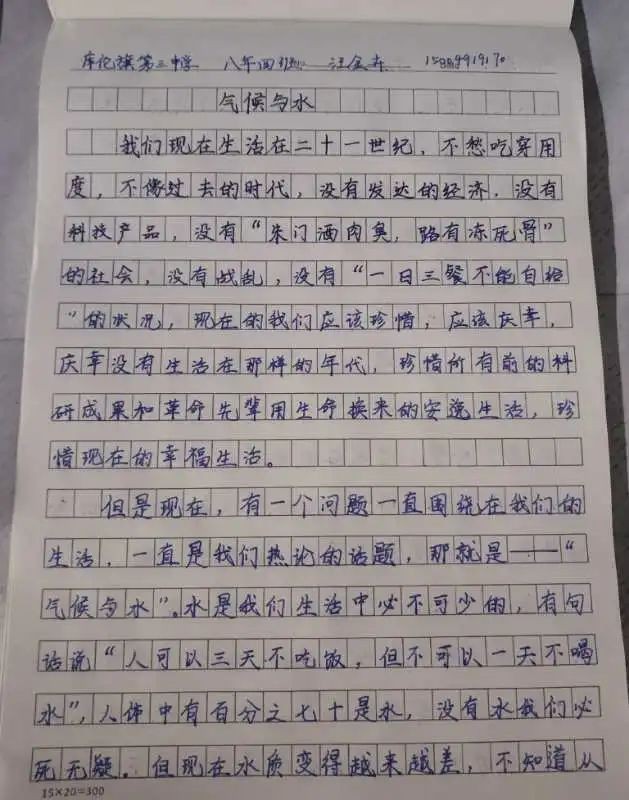 库伦旗第三中学 八年四班 汪金卉 15889919170
气候与水
我们现在生活在二十一世纪，不愁吃穿用
度，不像过去的时代，没有发达的经济，没有
科技产品，没有“朱门酒肉臭，路有冻死骨”
的社会，没有战乱，没有“一日三餐不能自给
”的状况，现在的我们应该珍惜，应该庆幸，
庆幸没有生活在那样的年代，珍惜所有前的科
研成果和革命先辈用生命换来的安逸生活，珍
惜现在的幸福生活。
但是现在，有一个问题一直围绕在我们的
生活，一直是我们热论的话题，那就是——“
气候与水”。水是我们生活中必不可少的，有句
话说“人可以三天不吃饭，但不可以一天不喝
水”，人体中有百分之七十是水，没有水我们必
死无疑。但现在水质变得越来越差，不知道从
15×20=300